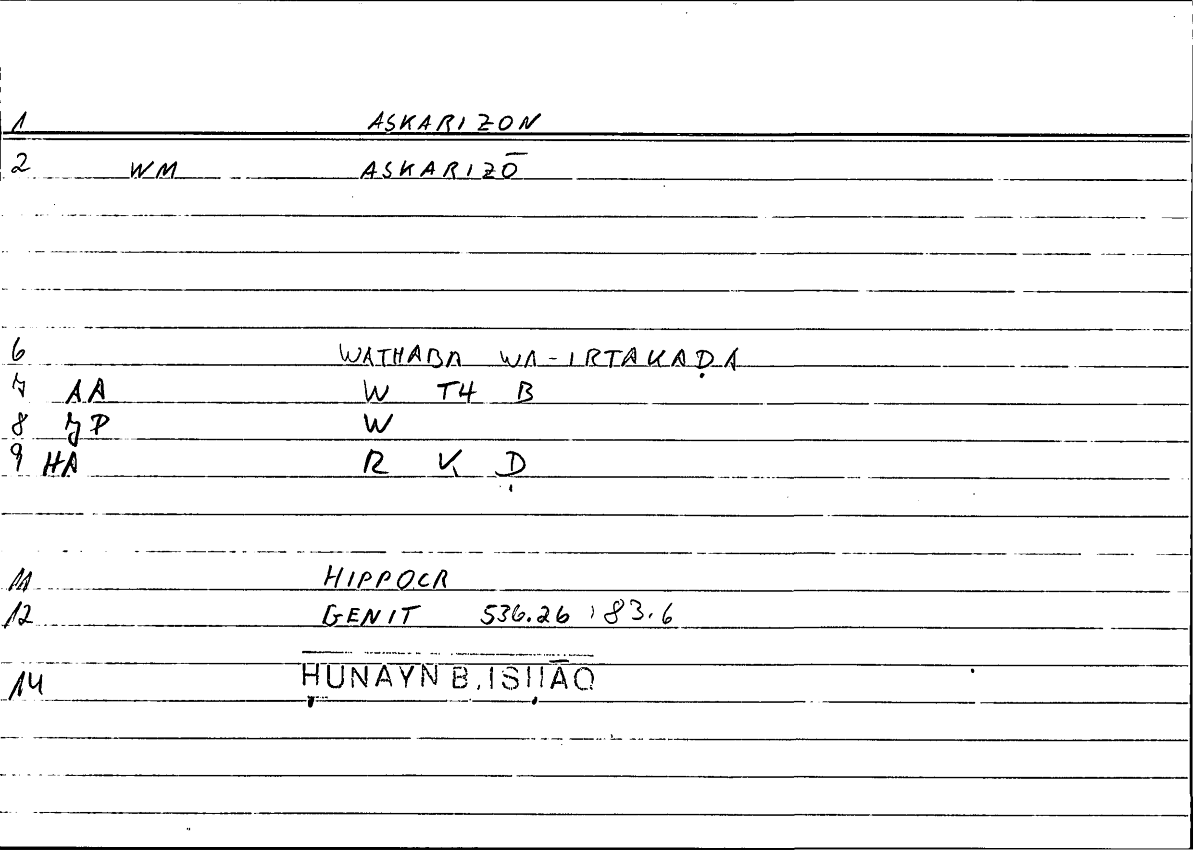 1 ASKARIZON
2 WM ASKARIZŌ
6 WATHABA WA-IRTAKAḌA
7 AA W TH B
8 JP W
9 HA R K Ḍ
11 HIPPOCR
12 GENIT 536.26 : 83.6
14 ḤUNAYN B. ISḤĀQ